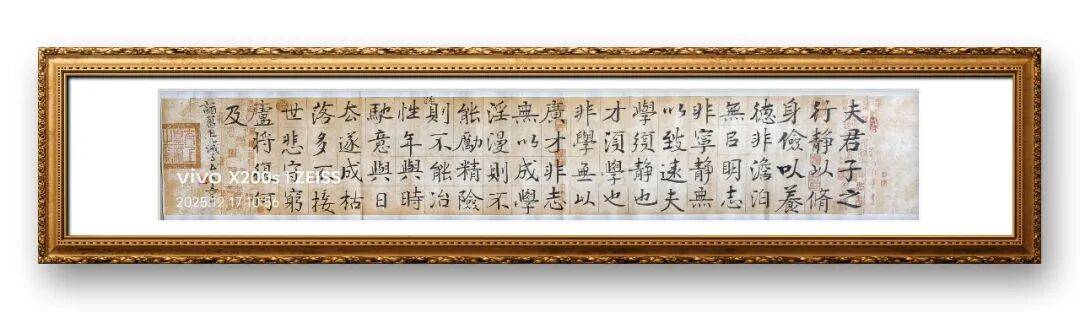 夫君子之
行静以脩
身儉以養
德非澹泊
無㠯明志
非寧静無
以致遠夫
學須静也
才須學也
非學無以
廣才非志
無以成學
淫漫則不
能勵精險
則不能治
性年與時
馳意與日
去遂成枯
落多不接
世悲守窮
廬將復何
及
諸葛亮誡子
vivo X200s | ZEISS
2025.12.17 10:56